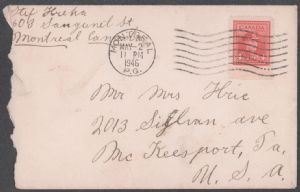 Stef Hricko
609 Sanguinet St
Montreal Can
MONTREAL
MAY 2
11 PM
1946
P.Q.
CANADA
Mr Mrs Hric
2013 Sillvan ave
Mc Keesport, Pa.
U. S. A.